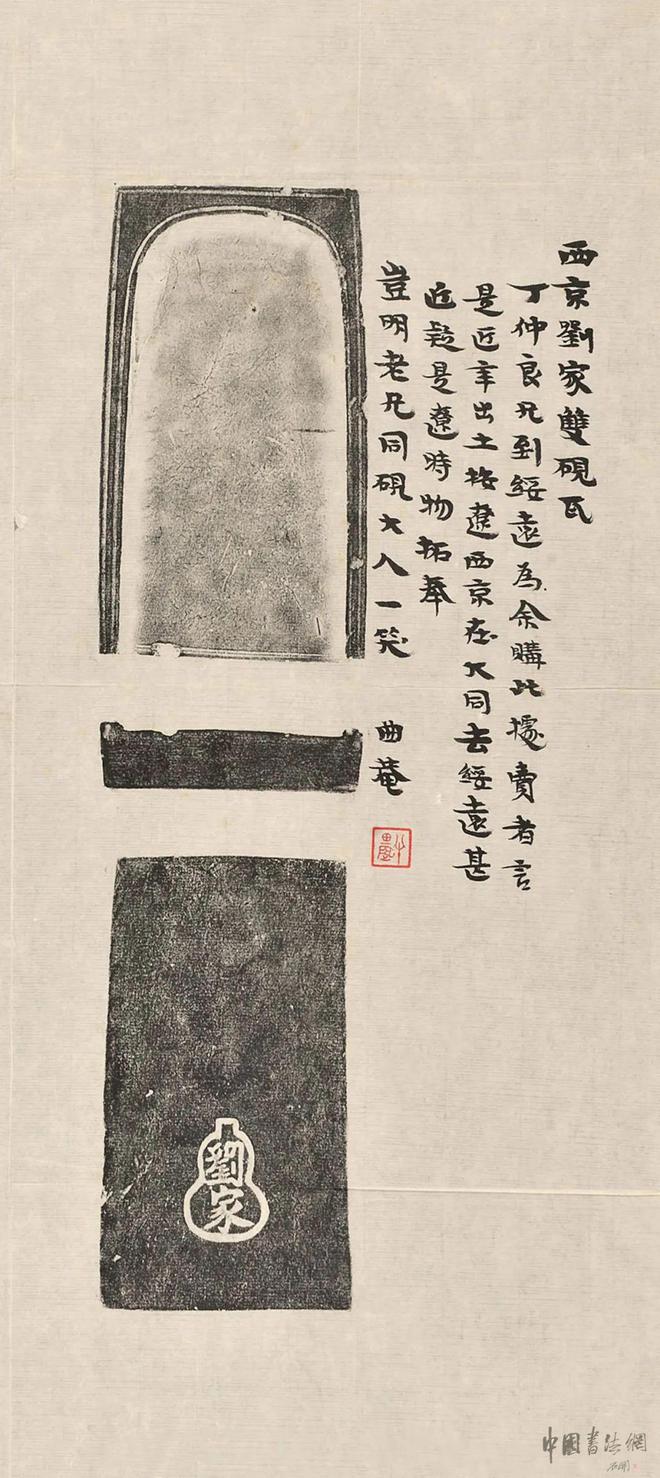 西京劉家雙硯瓦
丁仲良兄到綏遠為余購此據賣者言
是近年出土按遼西京在大同去綏遠甚
近疑是遼時物拓奉
豈明老兄同硯大人一笑
曲菴
劉家
中國書法網